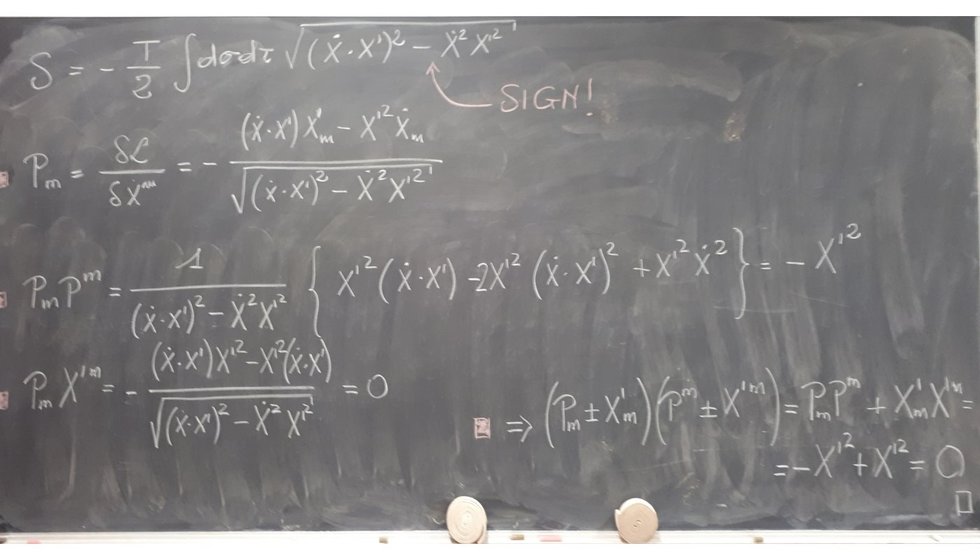 S = - T/2 ∫dσdτ √((Ẋ·X')² - Ẋ²X'²)
SIGN!
P_m = δℒ/δẊ^m = - ((Ẋ·X')X'_m - X'²Ẋ_m)/√((Ẋ·X')² - Ẋ²X'²)
P_m P^m = 1/((Ẋ·X')² - Ẋ²X'²) { X'²(Ẋ·X') - 2X'²(Ẋ·X')² + X'²Ẋ² } = - X'²
P_m X'^m = - ((Ẋ·X')X'² - X'²(Ẋ·X'))/√((Ẋ·X')² - Ẋ²X'²) = 0
⇒ (P_m ± X'_m)(P^m ± X'^m) = P_m P^m + X'_m X'^m =
= - X'² + X'² = 0
□